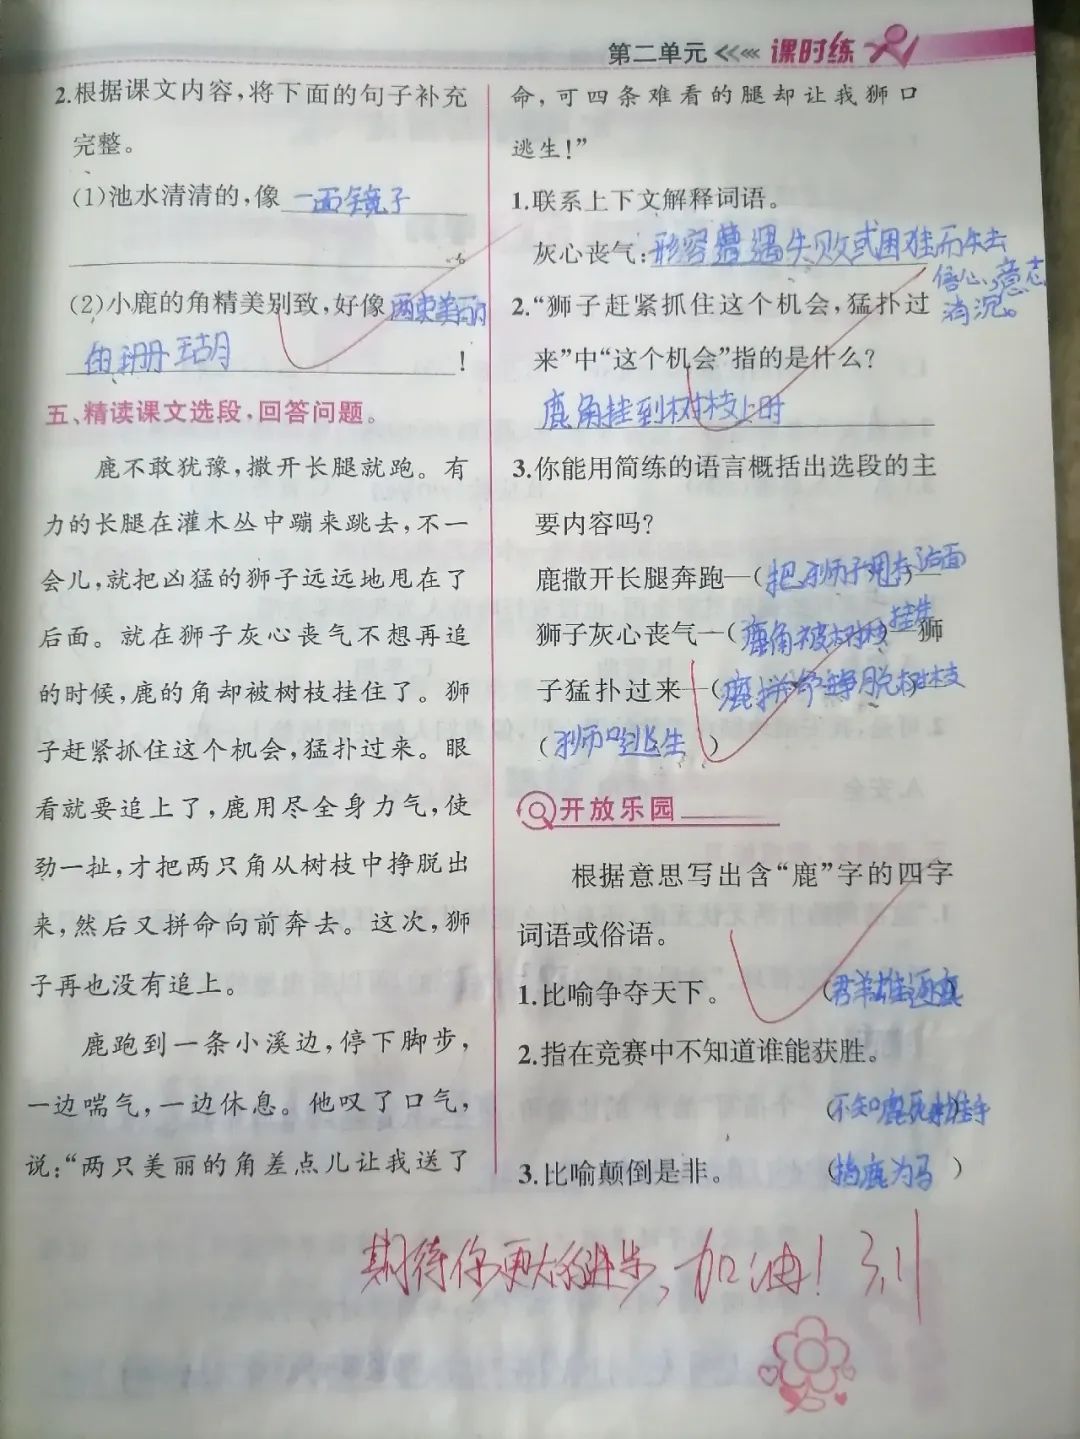 第二单元 课时练
2.根据课文内容,将下面的句子补充
完整。
(1)池水清清的,像 一面镜子
。
(2)小鹿的角精美别致,好像 两束美丽
的珊瑚 !
五、精读课文选段,回答问题。
鹿不敢犹豫,撒开长腿就跑。有
力的长腿在灌木丛中蹦来跳去,不一
会儿,就把凶猛的狮子远远地甩在了
后面。就在狮子灰心丧气不想再追
的时候,鹿的角却被树枝挂住了。狮
子赶紧抓住这个机会,猛扑过来。眼
看就要追上了,鹿用尽全身力气,使
劲一扯,才把两只角从树枝中挣脱出
来,然后又拼命向前奔去。这次,狮
子再也没有追上。
鹿跑到一条小溪边,停下脚步,
一边喘气,一边休息。他叹了口气,
说:“两只美丽的角差点儿让我送了
命,可四条难看的腿却让我狮口
逃生!”
1.联系上下文解释词语。
灰心丧气:形容遭遇失败或困难而失去
信心、意志
消沉。
2.“狮子赶紧抓住这个机会,猛扑过
来”中“这个机会”指的是什么?
鹿角挂到树枝上时
3.你能用简练的语言概括出选段的主
要内容吗?
鹿撒开长腿奔跑—(把狮子甩在后面)—
狮子灰心丧气—(鹿角被树枝挂住)—狮
子猛扑过来—(鹿拼命挣脱树枝)
(狮口逃生)
开放乐园
根据意思写出含“鹿”字的四字
词语或俗语。
1.比喻争夺天下。 (群雄逐鹿)
2.指在竞赛中不知道谁能获胜。
(不知鹿死谁手)
3.比喻颠倒是非。 (指鹿为马)
期待你更大的进步,加油! 3.11